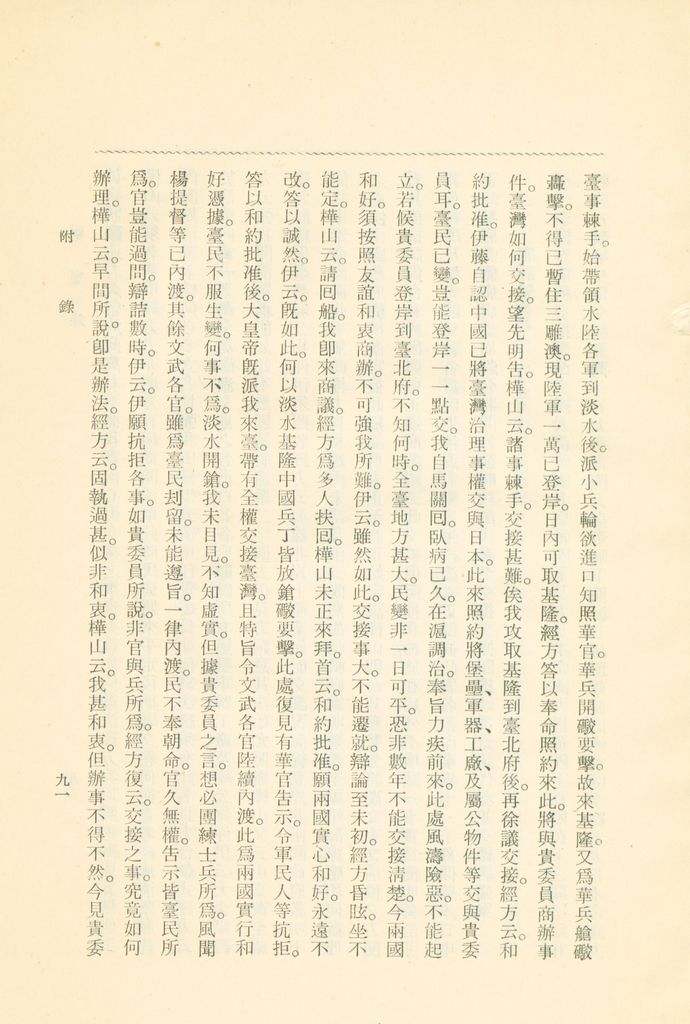 臺事棘手。始帶領水陸各軍到淡水後。派小兵輪欲進口知照華官。華兵開礮要擊。故來基隆。又爲華兵艙礮
轟擊。不得已暫住三雕澳。現陸軍一萬已登岸。日內可取基隆。經方答以奉命照約來此。將與貴委員商辦事
件。臺灣如何交接。望先明告。樺山云。諸事棘手。交接甚難。俟我攻取基隆到臺北府後。再徐議交接。經方云。和
約批准。伊藤自認中國已將臺灣治理事權交與日本。此來照約將堡壘、軍器、工廠、及屬公物件等交與貴委
員耳。臺民已變。豈能登岸一一點交。我自馬關回。臥病已久。在滬調治。奉旨力疾前來。此處風濤險惡。不能起
立。若候貴委員登岸到臺北府。不知何時。全臺地方甚大。民變非一日可平。恐非數年不能交接清楚。今兩國
和好。須按照友誼和衷商辦。不可強我所難。伊云。雖然如此。交接事大。不能遷就。辯論至未初。經方昏眩。坐不
能定。樺山云。請回船。我卽來商議。經方爲多人扶回。樺山未正來拜。首云。和約批准。願兩國實心和好。永遠不
改。答以誠然。伊云。旣如此。何以淡水基隆中國兵丁皆放鎗礮要擊。此處復見有華官告示。令軍民人等抗拒。
答以和約批准後。大皇帝旣派我來臺。帶有全權交接臺灣。且特旨令文武各官陸續內渡。此爲兩國實行和
好憑據。臺民不服生變。何事不爲。淡水開鎗。我未目見。不知虛實。但據貴委員之言。想必團練士兵所爲。風聞
楊提督等已內渡。其餘文武各官。雖爲臺民刦留。未能遵旨。一律內渡。民不奉朝命。官久無權。告示皆臺民所
爲。官豈能過問。辯詰數時。伊云伊願抗拒各事。如貴委員所說。非官與兵所爲。經方復云。交接之事。究竟如何
辦理。樺山云。早間所說卽是辦法。經方云。固執過甚。似非和衷。樺山云。我甚和衷。但辦事不得不然。今見貴委
附錄
九一